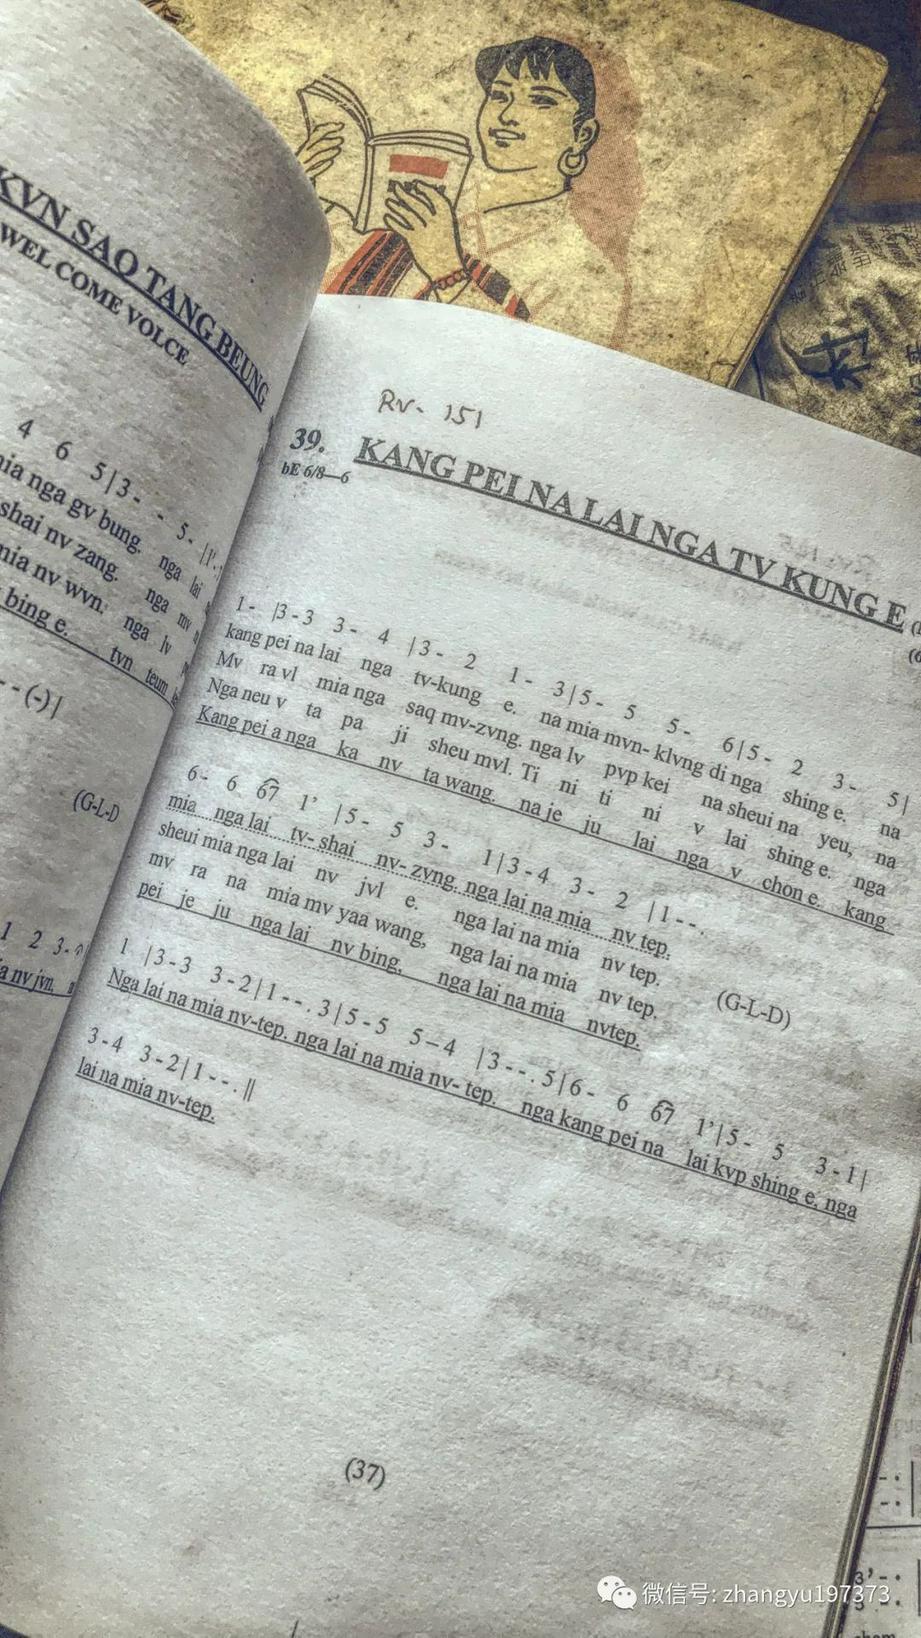 KVN SAO TANG BEUNG
WEL COME VOLCE
4 6 5 | 3 - - 5 - | 1'
mia nga gv bung. nga lai
shai nv zang. nga mv
mia nv wvn. nga lv
bing e. tvn teum
- - (-) |
(G-L-D
1 2 3 -
nv jvn,
Rv- 151
39. KANG PEI NA LAI NGA TV KUNG E
bE 6/8—6
1 - | 3 - 3 3 - 4 | 3 - 2 1 - 3 | 5 - 5 5 - 6 | 5 - 2 3 - 5 |
kang pei na lai nga tv-kung e. na mia mvn- klvng di nga shing e. na
Mv ra vl mia nga saq mv-zvng. nga lv pvp kei na sheui na yeu, na
Nga neu v ta pa ji sheu mvl. Ti ni ti ni v lai shing e. nga
Kang pei a nga ka nv ta wang. na je ju lai nga v chon e. kang
6 - 6 67 1’ | 5 - 5 3 - 1 | 3 - 4 3 - 2 | 1 - - .
mia nga lai tv- shai nv- zvng. nga lai na mia nv tep.
sheui mia nga lai nv jvl e. nga lai na mia nv tep.
mv ra na mia mv yaa wang, nga lai na mia nv tep.
pei je ju nga lai nv bing, nga lai na mia nvtep.
(G-L-D)
1 | 3 - 3 3 - 2 | 1 - - . 3 | 5 - 5 5 – 4 | 3 - - . 5 | 6 - 6 67 1’ | 5 - 5 3 - 1 |
Nga lai na mia nv-tep. nga lai na mia nv- tep. nga kang pei na lai kvp shing e, nga
3 - 4 3 - 2 | 1 - - . ||
lai na mia nv-tep.
(37)
村
微信号: zhangyu197373